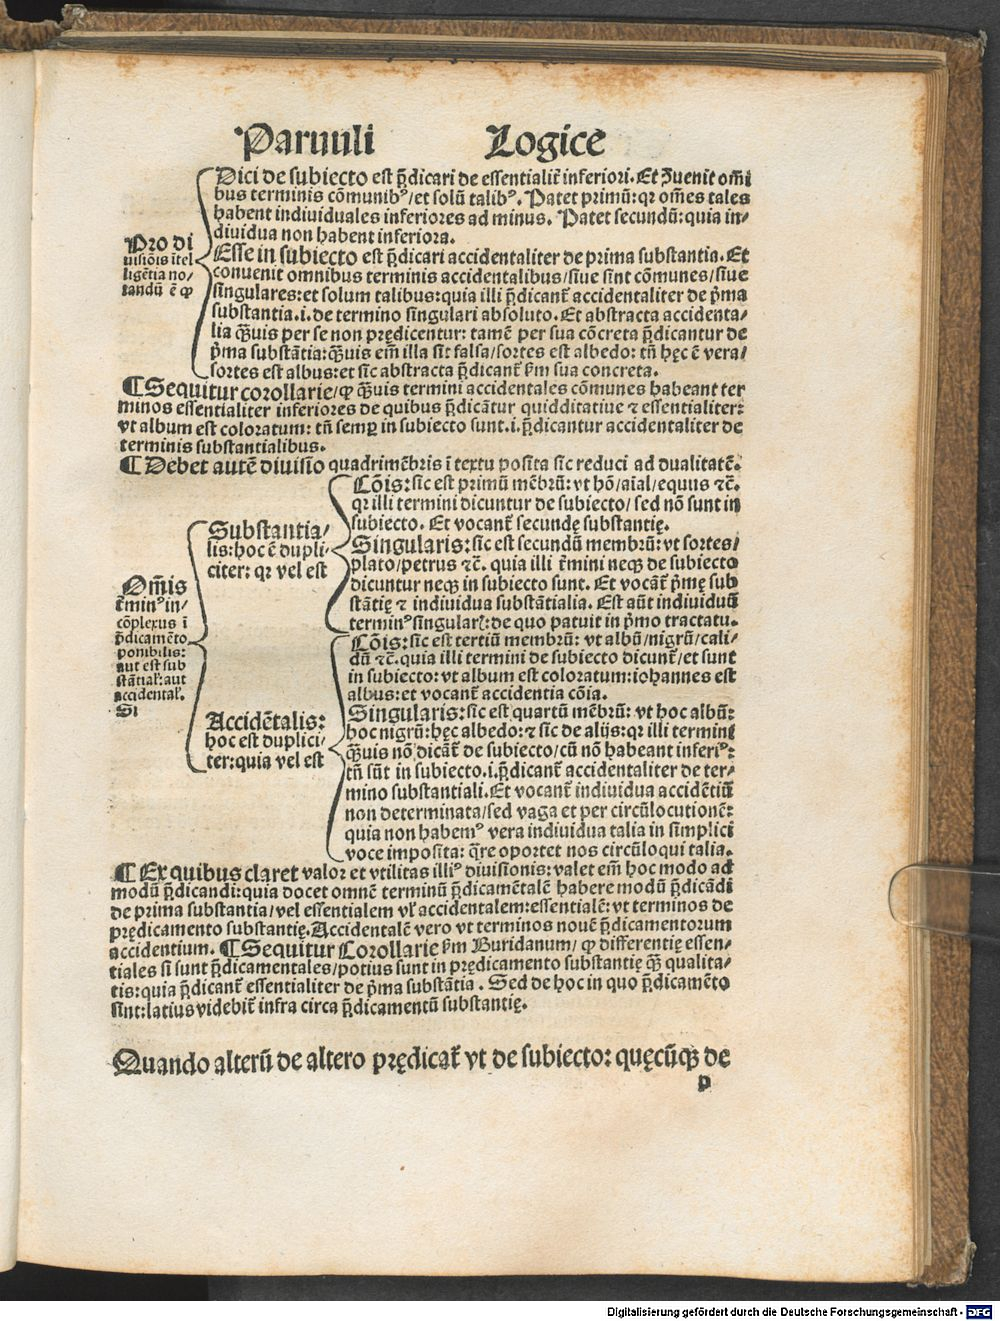 Paruuli Logice
Dici de subiecto est p̃dicari de essentialit̃ inferiori. Et ꝯuenit om̃i
bus terminis cõmunibꝰ/et solũ talibꝰ. Patet primũ: qꝛ om̃es tales
habent indiuiduales inferiores ad minus. Patet secundũ: quia in⸗
diuidua non habent inferiora.
Pro di
uisiõis ĩtel
ligẽtia no/
tandũ ẽ ꝙ
Esse in subiecto est p̃dicari accidentaliter de prima substantia. Et
conuenit omnibus terminis accidentalibus/siue sint cõmunes/siue
singulares: et solum talibus: quia illi p̃dicant̃ accidentaliter de p̃ma
substantia.i.de termino singulari absoluto. Et abstracta accidenta/
lia q̃uis per se non prędicentur: tamẽ per sua cõcreta p̃dicantur de
p̃ma substãtia: q̃uis em̃ illa sit falsa/sortes est albedo: tñ hęc ẽ vera/
sortes est albus: et sic abstracta p̃dicant̃ ẜm sua concreta.
¶ Sequitur corollarie/ ꝙ q̃uis termini accidentales cõmunes habeant ter
minos essentialiter inferiores de quibus p̃dicãtur quidditatiue ⁊ essentialiter:
vt album est coloratum: tñ semꝑ in subiecto sunt.i.p̃dicantur accidentaliter de
terminis substantialibus.
¶ Debet autẽ diuisio quadrimẽbris ĩ textu posita sic reduci ad dualitatẽ.
Om̃is
t̃minꝰ in⸗
cõplexus ĩ
p̃dicamẽto
ponibilis:
aut est sub
stãtial̃: aut
accidental̃.
Si
Substantia/
lis: hoc ẽ dupli⸗
citer: qꝛ vel est
Cõis: sic est primũ mẽbrũ: vt hõ/aĩal/equus ⁊c̃.
qꝛ illi termini dicuntur de subiecto/ sed nõ sunt in
subiecto. Et vocant̃ secundę substantię.
Singularis: sic est secundũ membrũ: vt sortes/
plato/petrus ⁊c̃. quia illi t̃mini neqꝫ de subiecto
dicuntur neqꝫ in subiecto sunt. Et vocãt̃ p̃mę sub
stãtię ⁊ indiuidua substãtialia. Est aũt indiuiduũ
terminꝰ singular̃: de quo patuit in p̃mo tractatu.
Accidẽtalis:
hoc est duplici⸗
ter: quia vel est
Cõis: sic est tertiũ membrũ: vt albũ/nigrũ/cali⸗
dũ ⁊c̃. quia illi termini de subiecto dicunt̃/et sunt
in subiecto: vt album est coloratum: iohannes est
albus: et vocant̃ accidentia cõia.
Singularis: sic est quartũ mẽbrũ: vt hoc albũ:
hoc nigrũ: hęc albedo: ⁊ sic de alijs: qꝛ illi termini
q̃uis nõ dicãt̃ de subiecto/cũ nõ habeant inferiꝰ:
tñ sũt in subiecto.i.p̃dicant̃ accidentaliter de ter⸗
mino substantiali. Et vocant̃ indiuidua accidẽtiũ
non determinata/sed vaga et per circũlocutionẽ:
quia non habemꝰ vera indiuidua talia in simplici
voce imposita: q̃re oportet nos circũloqui talia.
¶ Ex quibus claret valor et vtilitas illiꝰ diuisionis: valet em̃ hoc modo ad
modũ p̃dicandi: quia docet omnẽ terminũ p̃dicamẽtalẽ habere modũ p̃dicãdi
de prima substantia/vel essentialem vl̃ accidentalem: essentialẽ: vt terminos de
prędicamento substantię. Accidentalẽ vero vt terminos nouẽ p̃dicamentorum
accidentium. ¶ Sequitur Corollarie ẜm Buridanum/ ꝙ differentię essen⸗
tiales si sunt p̃dicamentales/potius sunt in prędicamento substantię q̃ꝫ qualita⸗
tis: quia p̃dicant̃ essentialiter de p̃ma substãtia. Sed de hoc in quo p̃dicamẽto
sint: latius videbit̃ infra circa p̃dicamentũ substantię.
Quando alterũ de altero prędicat̃ vt de subiecto: quęcũqꝫ de
p
Digitalisierung gefördert durch die Deutsche Forschungsgemeinschaft - DFG